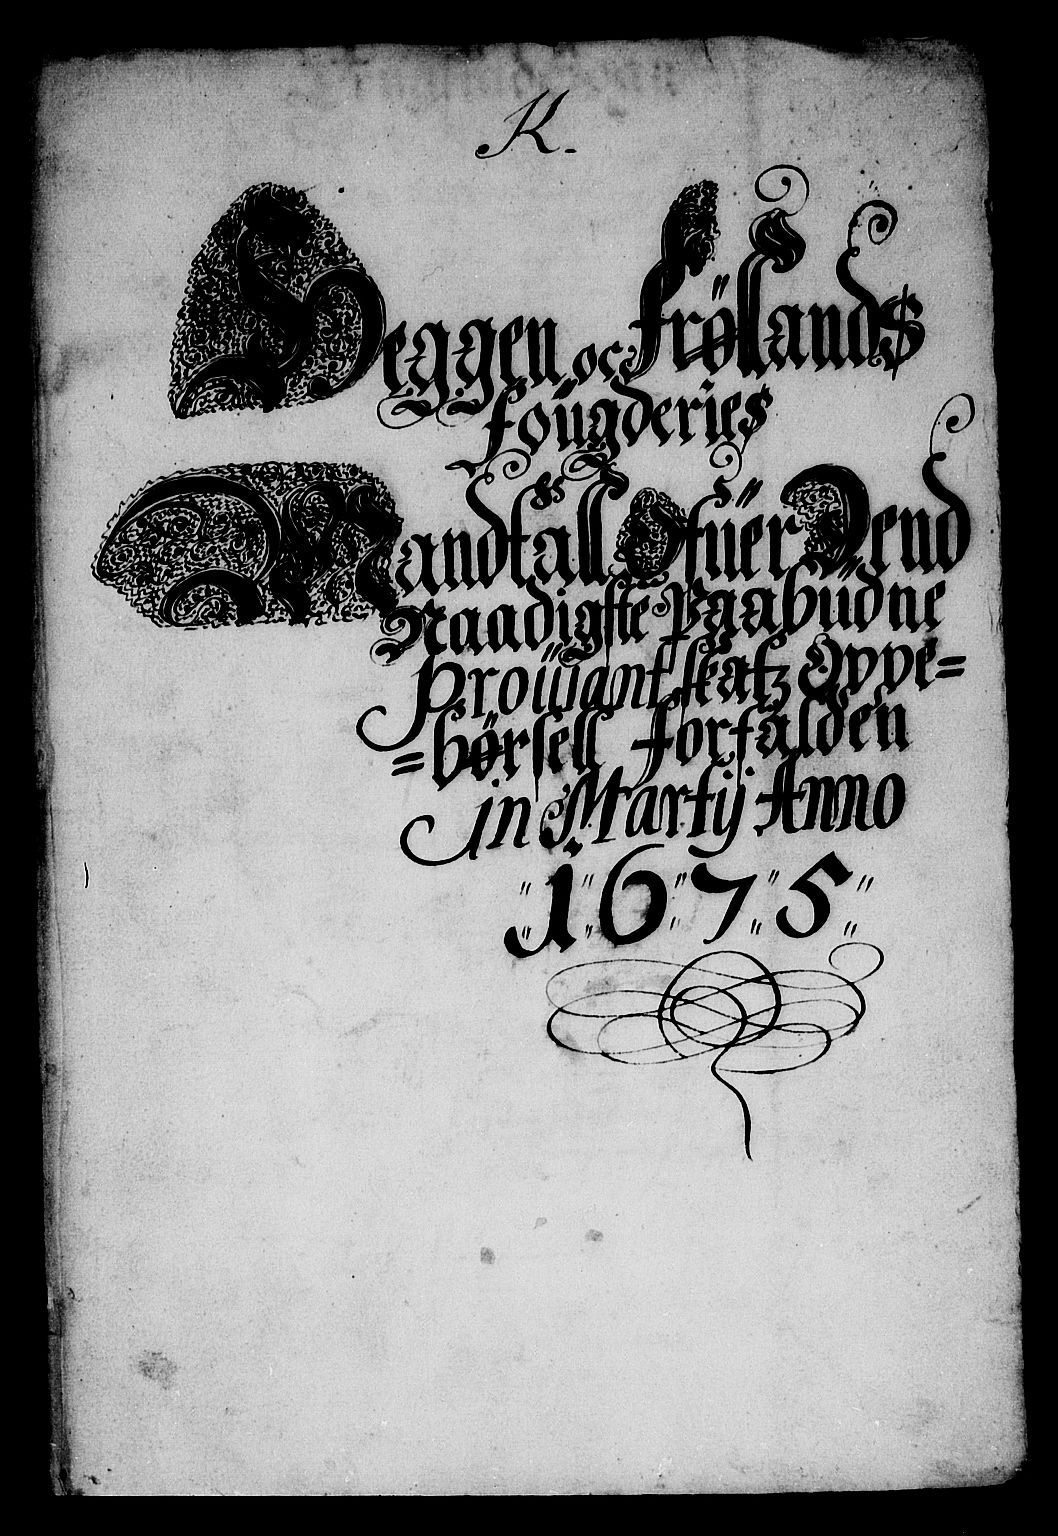 K.
Heggen oc Frölands
fougderies
Mandtall Ofuer Dend
Naadigste Paabudne
Prouiant skatz Oppe=
=børsell Forfalden
in Martij Anno
1675